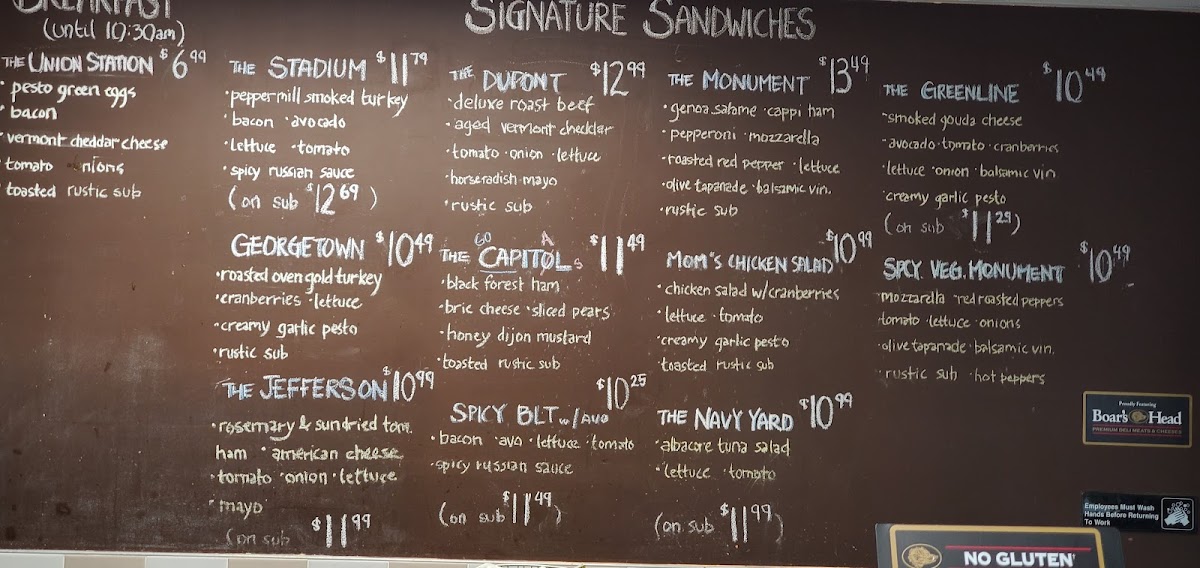 BREAKFAST
(until 10:30am)
THE UNION STATION $6.99
• pesto green eggs
• bacon
• vermont cheddar cheese
• tomato nions
• toasted rustic sub
SIGNATURE SANDWICHES
THE STADIUM $11.79
• peppermill smoked turkey
• bacon • avocado
• lettuce • tomato
• spicy russian sauce
(on sub $12.69)
GEORGETOWN $10.49
• roasted oven gold turkey
• cranberries • lettuce
• creamy garlic pesto
• rustic sub
THE JEFFERSON $10.99
• rosemary & sundried tom.
ham • american cheese
• tomato • onion • lettuce
• mayo
(on sub $11.99
THE DUPONT $12.99
• deluxe roast beef
• aged vermont cheddar
• tomato • onion • lettuce
• horseradish mayo
• rustic sub
GO A
THE CAPITOLS $11.49
• black forest ham
• brie cheese • sliced pears
• honey dijon mustard
• toasted rustic sub
SPICY BLT w/ Avo $10.25
• bacon • avo • lettuce • tomato
• spicy russian sauce
(on sub $11.49)
THE MONUMENT $13.49
• genoa salame • cappi ham
• pepperoni • mozzarella
• roasted red pepper • lettuce
• olive tapanade • balsamic vin.
• rustic sub
MOM'S CHICKEN SALAD $10.99
• chicken salad w/cranberries
• lettuce • tomato
• creamy garlic pesto
• toasted rustic sub
THE NAVY YARD $10.99
• albacore tuna salad
• lettuce • tomato
(on sub $11.99)
THE GREENLINE $10.49
• smoked gouda cheese
• avocado • tomato • cranberries
• lettuce • onion • balsamic vin
• creamy garlic pesto
(on sub $11.29)
SPCY. VEG. MONUMENT $10.49
mozzarella • red roasted peppers
tomato • lettuce • onions
• olive tapanade • balsamic vin.
• rustic sub • hot peppers
Proudly Featuring
Boar's Head
PREMIUM DELI MEATS & CHEESES
Employees Must Wash
Hands Before Returning
To Work
NO GLUTEN